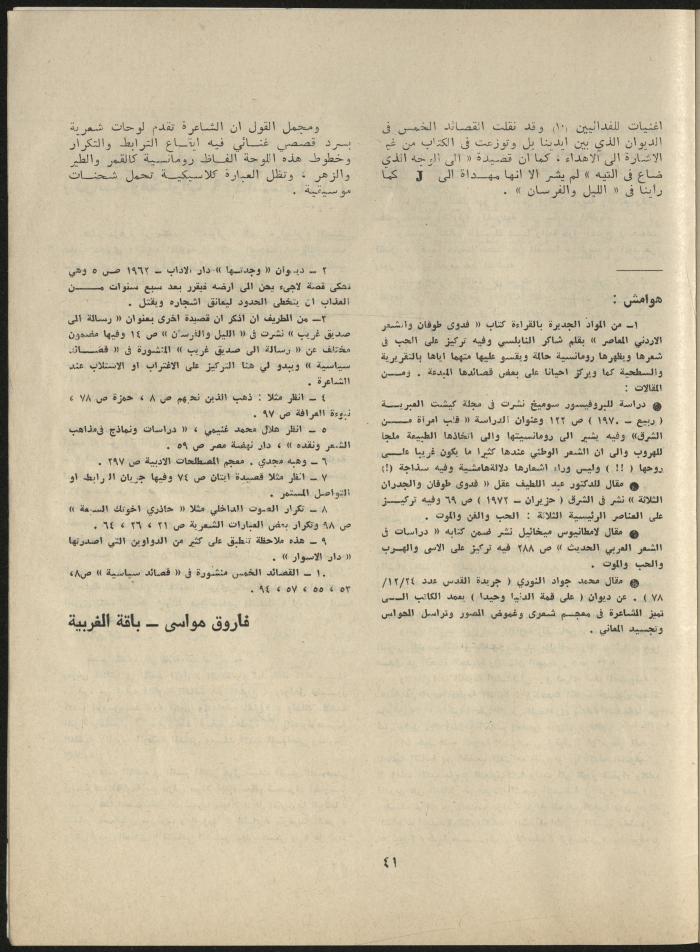 اغنيات للفدائيين (١٠) وقد نقلت القصائد الخمس في
الديوان الذي بين ايدينا بل وتوزعت في الكتاب من غير
الاشارة الى الاهداء ، كما ان قصيدة « الى الوجه الذي
ضاع في التيه » لم يشر الا انها مهـداة الى J كما
راينا في « الليل والفرسان » .
ومجمل القول ان الشاعرة تقدم لوحات شعرية
بسرد قصصي غنـائي فيه ايقـاع الترابط والتكرار
وخطوط هذه اللوحة الفـاظ رومانسية كالقمر والطير
والزهر ، وتظل العبارة كلاسيكيـة تحمل شحنـات
موسيقية .
هوامش :
١ــ من المواد الجديرة بالقراءة كتاب « فدوى طوقان والشعر
الاردني المعاصر » بقلم شاكر النابلسي وفيه تركيز على الحب في
شعرها ويظهرها رومانسية حالمة ويقسو عليها متهما اياها بالتقريرية
والسطحية كما ويركز احيانا على بعض قصائدها المبدعة . ومــن
المقالات :
● دراسة للبروفيسور سوميخ نشرت في مجلة كيشت العبريـة
( ربيع ــ ١٩٧٠ ) ص ١٢٢ وعنوان الدراسة « قلب امرأة مــن
الشرق» وفيه يشير الى رومانسيتها والى اتخاذها الطبيعة ملجأ
للهروب والى ان الشعر الوطني عندها كثيرا ما يكون غريبا علــى
روحها ( !! ) وليس وراء اشعارها دلالةهامشية وفيه سذاجة (!)
● مقال للدكتور عبد اللطيف عقل « فدوى طوقان والجدران
الثلاثة » نشر في الشرق ( حزيران ــ ١٩٧٢ ) ص ٦٩ وفيه تركيــز
على العناصر الرئيسية الثلاثة : الحب والفن والموت .
● مقال لامطانيوس ميخائيل نشر ضمن كتابه « دراسات في
الشعر العربي الحديث » ص ٢٨٨ فيه تركيز على الاسى والهـرب
والحب والموت .
● مقال محمد جواد النوري ( جريدة القدس عدد ١٢/٢٤/
٧٨ ) . عن ديوان ( على قمة الدنيا وحيدا ) يعمد الكاتب الــى
تميز الشاعرة في معجـم شعرى وغموض الصور وتراسل الحواس
وتجسيد المعاني .
٢ ــ ديـوان « وجدتـها » دار الاداب ــ ١٩٦٢ ص ٥ وهي
تحكي قصة لاجىء يحن الى ارضه فيقرر بعد سبع سنوات مــن
العذاب ان يتخطى الحدود ليعانق اشجاره ويقتل .
٣ــ من الطريف ان اذكر ان قصيدة اخرى بعنوان « رسالة الى
صديق غريب » نشرت في « الليل والفرسان » ص ١٤ وفيها مضمون
مختلف عن « رسالة الى صديق غريب » المنشورة في « قصـائد
سياسية » ويبدو لي هنا التركيز على الاغتراب او الاستلاب عند
الشاعرة .
٤ ــ انظر مثلا : ذهب الذين نحبهم ص ٨ ، حمزة ص ٧٨ ،
نبوءة العرافة ص ٩٧ .
٥ ــ انظر هلال محمد غنيمي ، « دراسات ونماذج في مذاهب
الشعر ونقده » ، دار نهضة مصر ص ٥٩ .
٦ ــ وهبه مجدي . معجم المصطلحات الادبية ص ٢٩٧ .
٧ ــ انظر مثلا قصيدة ايتان ص ٧٤ وفيها جريان الرابط او
التواصل المستمر .
٨ ــ تكرار الصوت الداخلي مثلا « حاذري اخوتك السبعة »
ص ٩٨ وتكرار بعض العبارات الشعرية ص ٢١ ، ٢٦ ، ٦٤ .
٩ ــ هذه ملاحظة تنطبق على كثير من الدواوين التي اصدرتها
« دار الاسوار » .
١٠ ــ القصائد الخمس منشورة في « قصائد سياسية » ص٨،
٥٣ ، ٥٥ ، ٥٧ ، ٩٤ .
فاروق مواسى ــ باقة الغربية
٤١